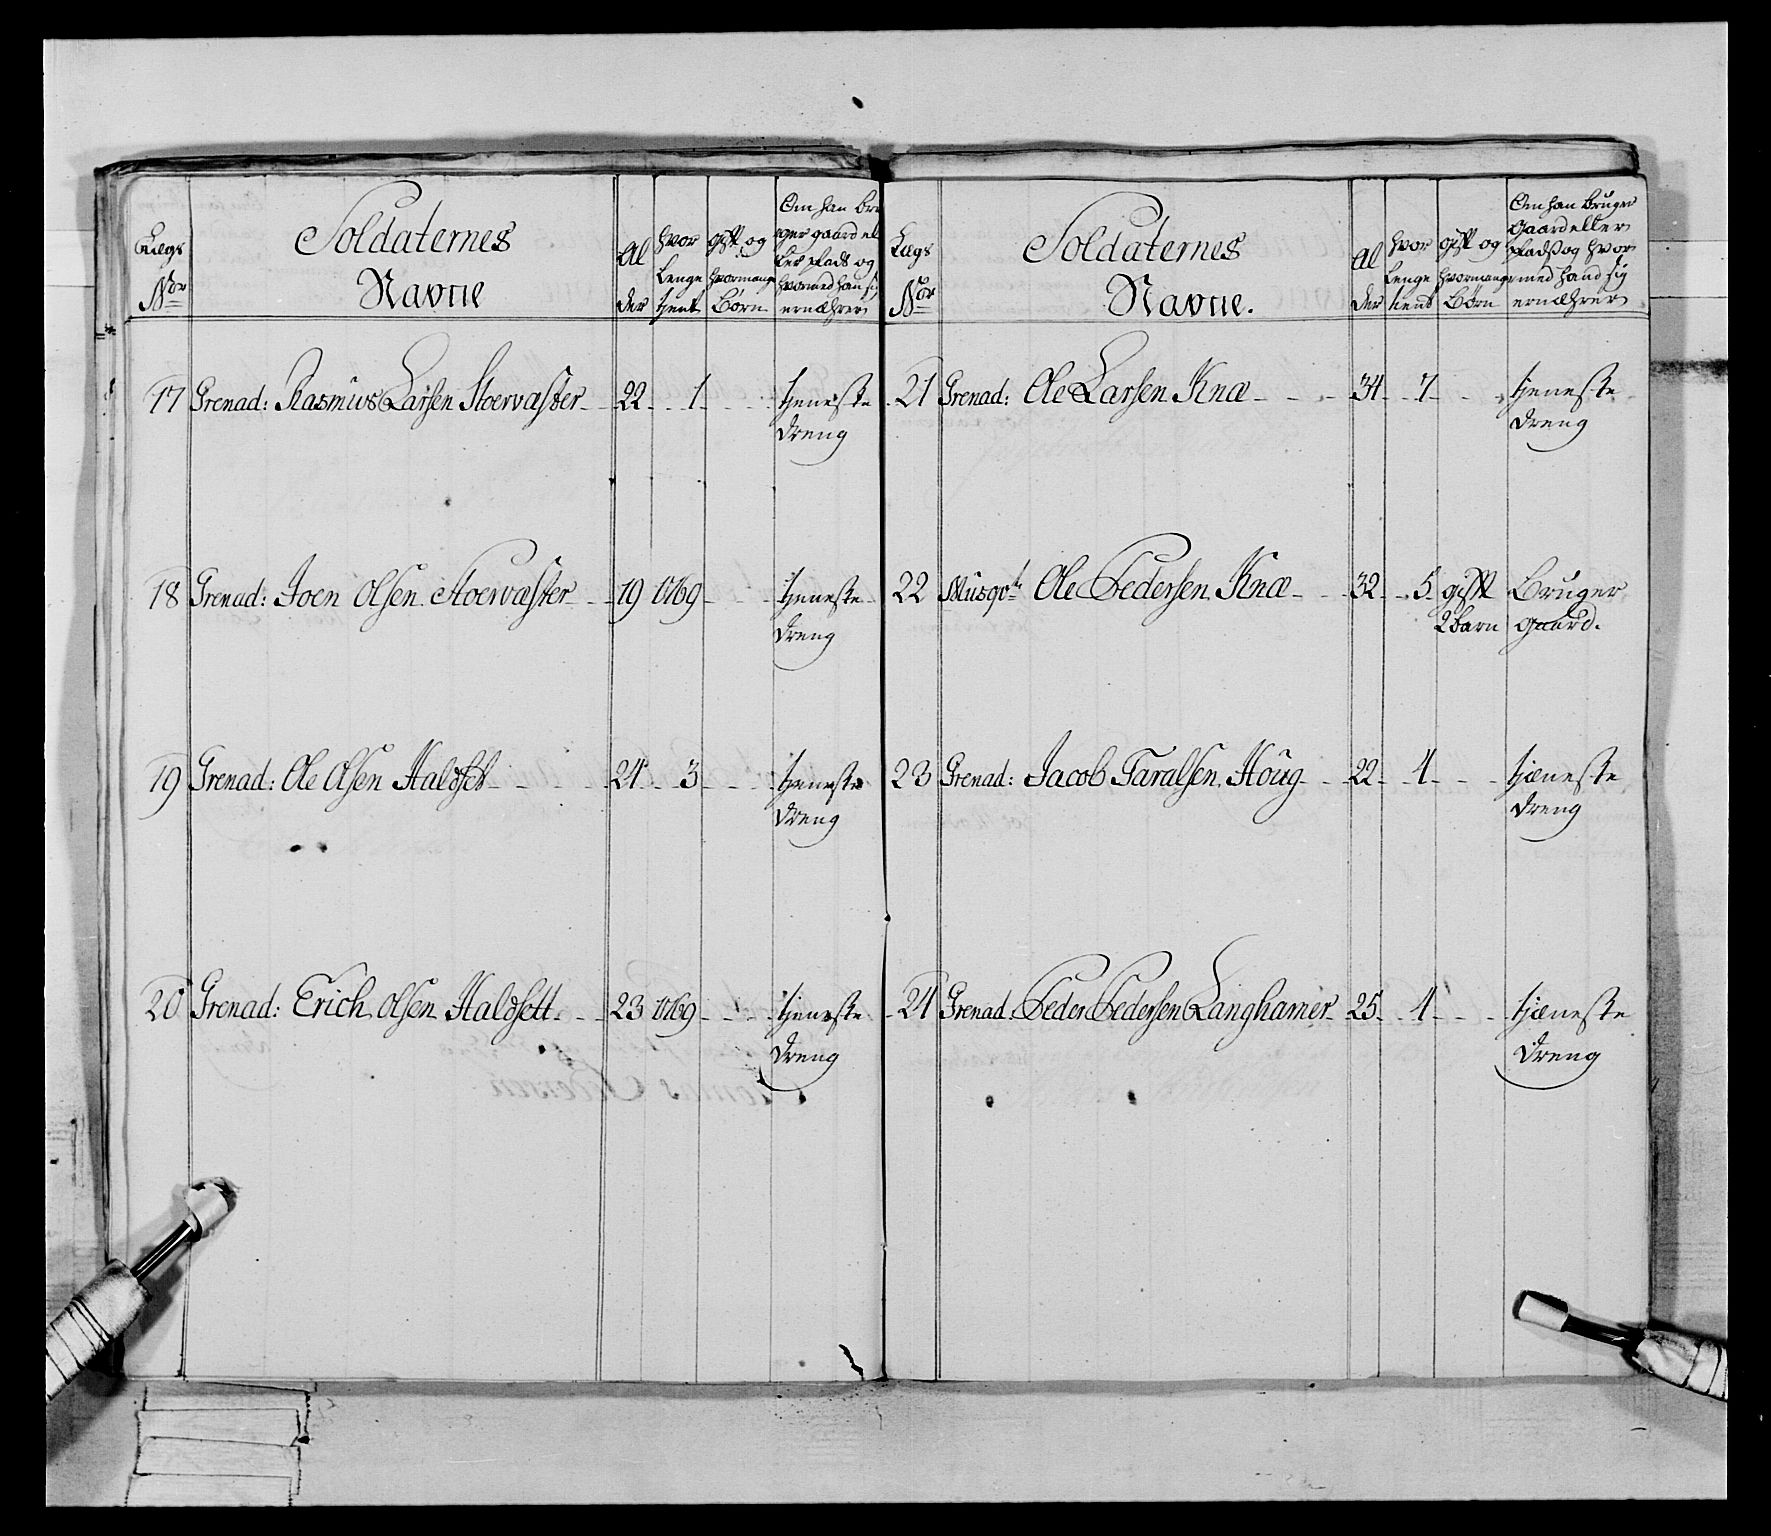 Lægs
Nor
Soldaternes
Navne
Al
der
hvor
Lenge
tient
gift og
hvormange
Børn
Om han bru
ger gaard el
ler plads og
hvormed han sig
ernæhrer
17 Grenad: Rasmus Larsen Stoervæster 22 1 tjeneste
dreng
18 Grenad: Joen Olsen Stoervæster 19 1769 tjeneste
dreng
19 Grenad: Ole Olsen Haldset 24 3 tjeneste
dreng
20 Grenad: Erich Olsen Haldsett 23 1769 tjeneste
dreng
Lægs
Nor
Soldaternes
Navne.
Al
der
hvor
Lenge
tient
gift og
hvormange
Børn
Om han bruger
Gaard eller
Plads og hvor
med hand sig
ernæhrer
21 Grenad: Ole Larsen Knæ 34 7 tjeneste
dreng
22 Musqvt: Ole Pedersen Knæ 32 5 gift Bruger
2 barn gaard.
23 Grenad: Jacob Taralsen Houg 22 4 tjæneste
dreng
24 Grenad: Peder Pedersen Langhamer 25 4 tjæneste
dreng